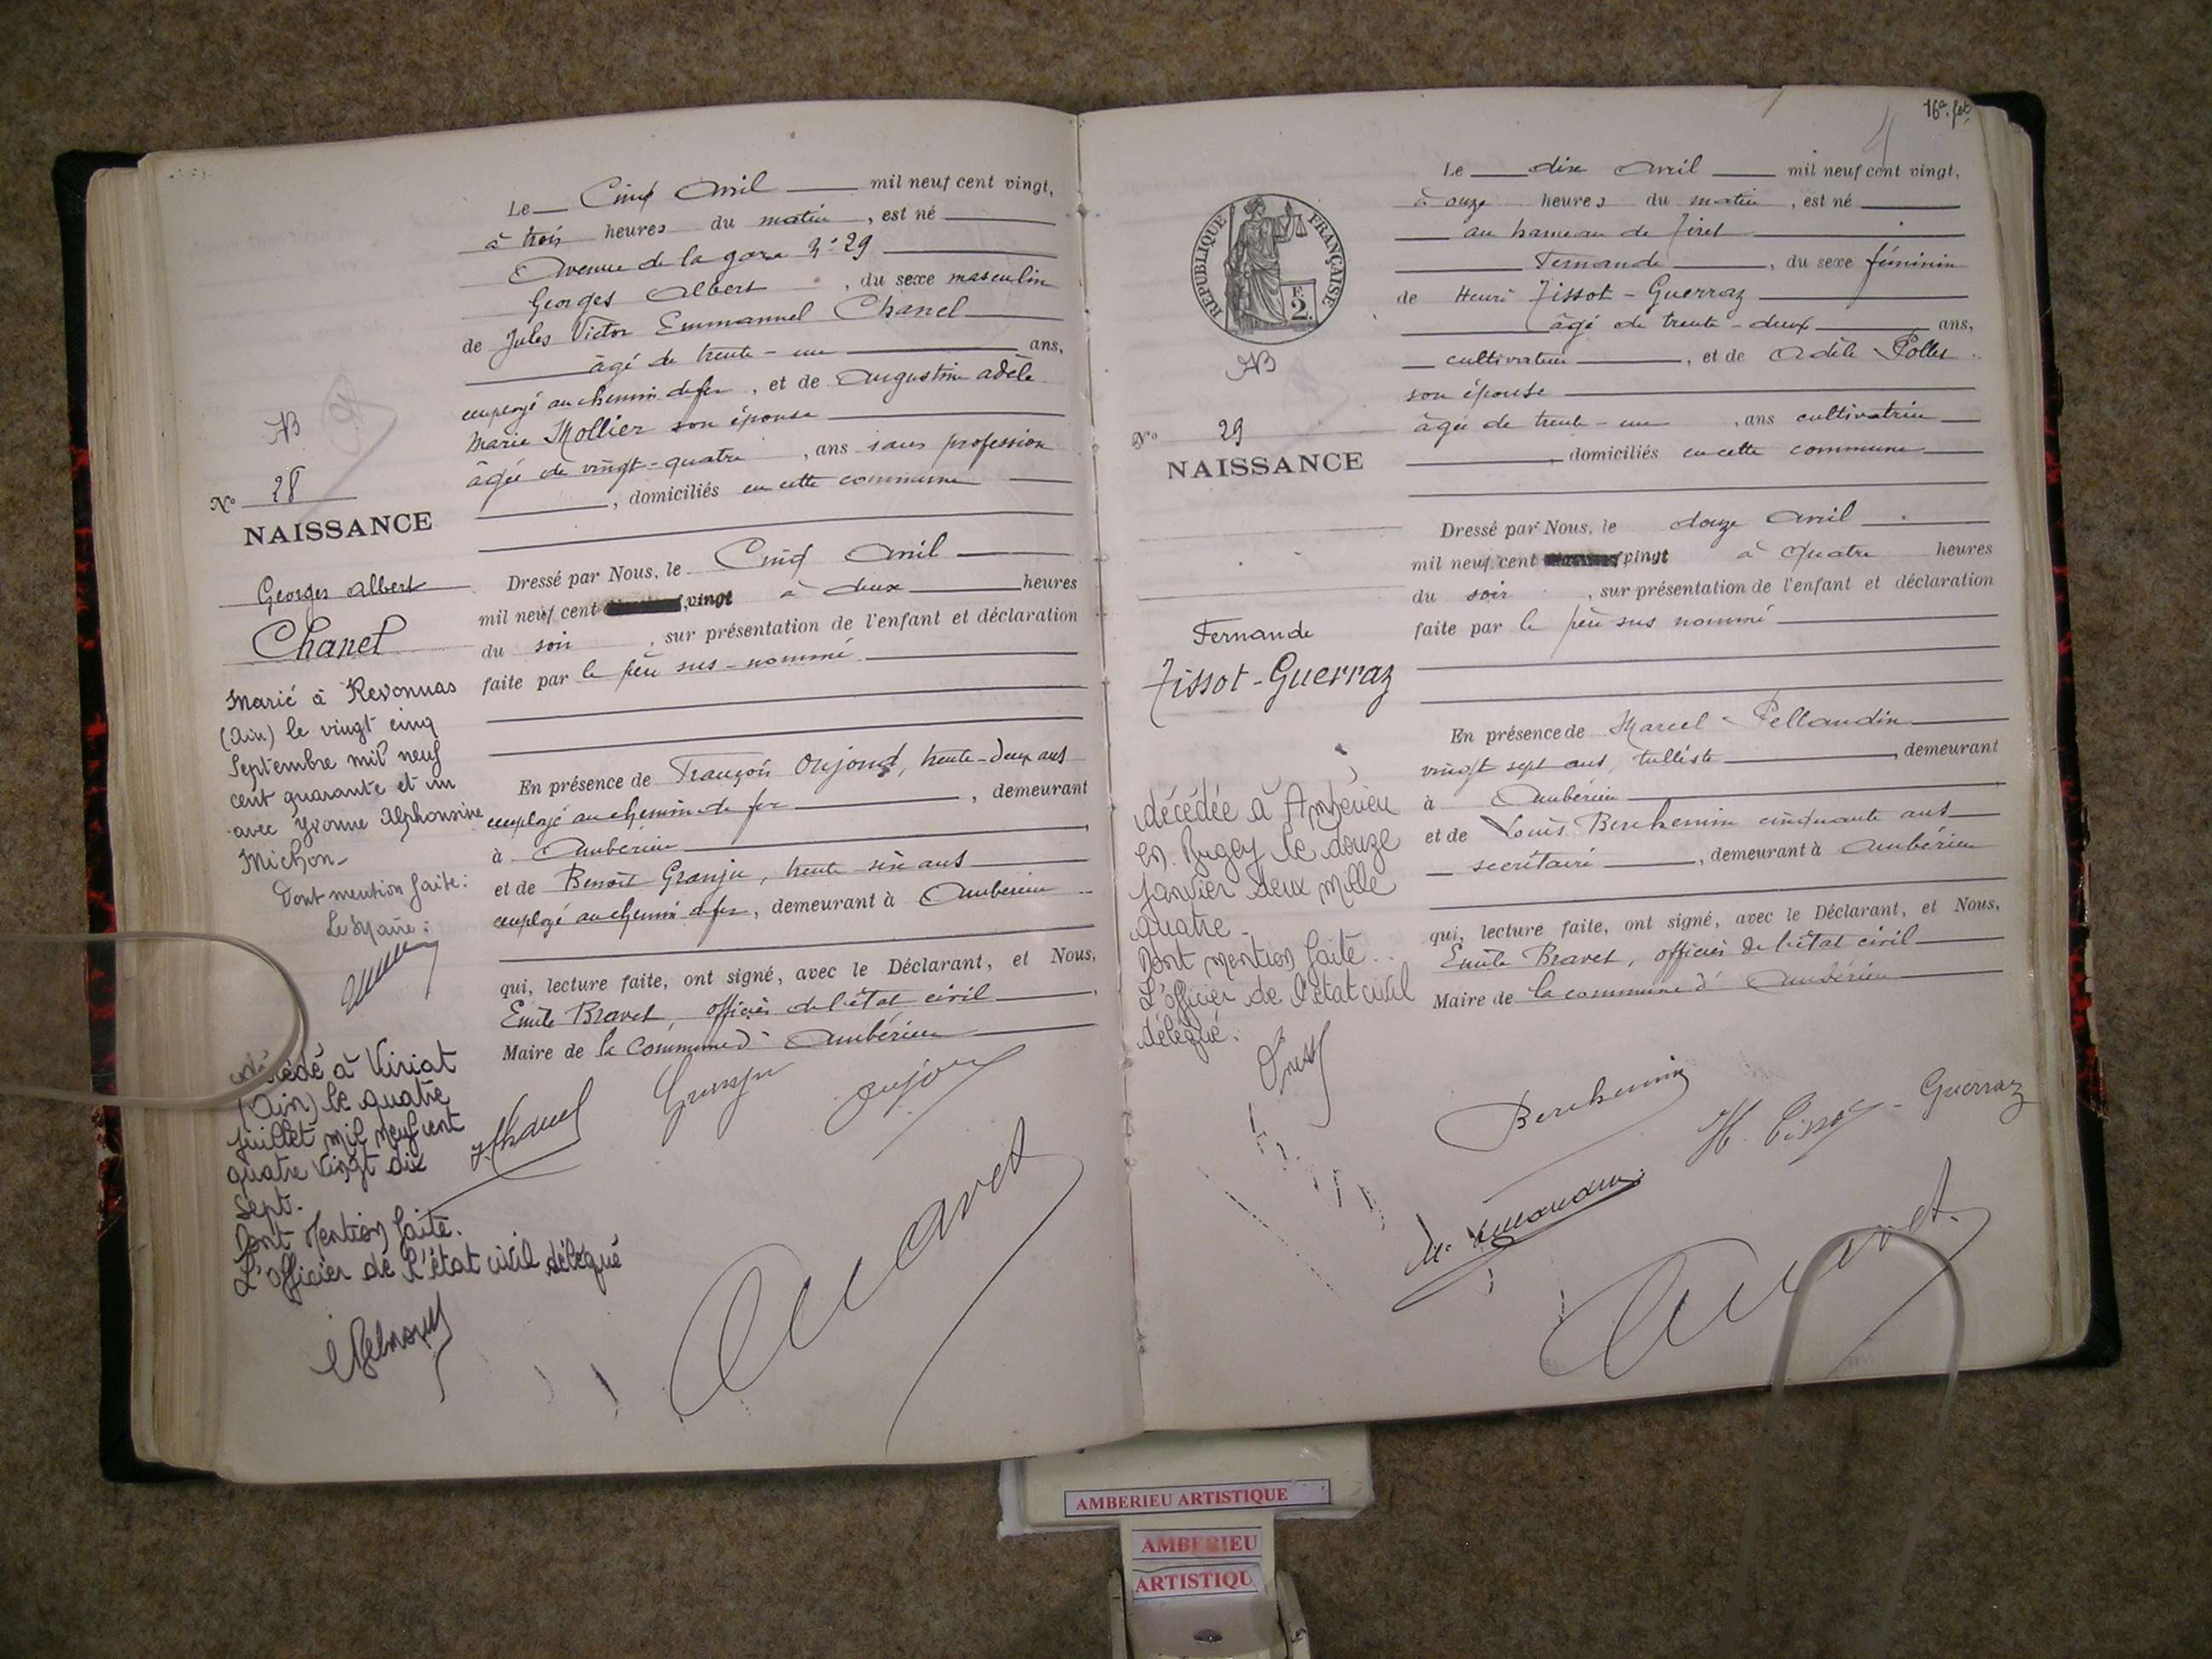 Le Cinq Avril mil neuf cent vingt,
à trois heures du matin, est né
Avenue de la gare N° 29
Georges Albert, du sexe masculin
de Jules Victor Emmanuel Chanel
âgé de trente-un ans,
employé au chemin de fer, et de Augustine Adèle
Marie Mollier son épouse
âgée de vingt-quatre, ans sans profession
, domiciliés en cette commune
AB
N° 28
NAISSANCE
Georges Albert
Chanel
Dressé par Nous, le Cinq Avril
mil neuf cent vingt à deux heures
du soir, sur présentation de l'enfant et déclaration
faite par le père sus-nommé
Marié à Revonnas
(Ain) le vingt cinq
Septembre mil neuf
cent quarante et un
avec Yvonne Alphonsine
Michon
Dont mention faite:
Le Maire:
En présence de François Oujoud, trente-deux ans
employé au chemin de fer, demeurant
à Ambérieu
et de Benoît Granju, trente-six ans
employé au chemin de fer, demeurant à Ambérieu
qui, lecture faite, ont signé, avec le Déclarant, et Nous,
Emile Bravet, officier de l'état civil
Maire de la Commune d'Ambérieu
décédé à Viriat
(Ain) le quatre
juillet mil neuf cent
quatre vingt dix
sept.
Dont Mention faite.
L'Officier de l'état civil délégué
J. Chanel
Granju
16e. fet
Le dix Avril mil neuf cent vingt,
à onze heures du matin, est né
au hameau de Tiret
Fernande, du sexe féminin
de Henri Tissot-Guerraz
âgé de trente-deux ans,
cultivateur, et de Adèle
son épouse
âgée de trente-un, ans cultivatrice
, domiciliés en cette commune
REPUBLIQUE FRANÇAISE
F. 2.
AB
N° 29
NAISSANCE
Fernande
Tissot-Guerraz
Dressé par Nous, le douze Avril
mil neuf cent vingt à quatre heures
du soir, sur présentation de l'enfant et déclaration
faite par le père sus nommé
En présence de Marcel Pellaudin
vingt sept ans, tulliste, demeurant
à Ambérieu
et de Louis Berchemin cinquante ans
secrétaire, demeurant à Ambérieu
qui, lecture faite, ont signé, avec le Déclarant, et Nous,
Emile Bravet, officier de l'état civil
Maire de la commune d'Ambérieu
décédée à Ambérieu
en Bugey le douze
janvier deux mille
quatre
Dont mention faite.
L'officier de l'état civil
délégué.
Berchemin
H. Tissot-Guerraz
AMBERIEU ARTISTIQUE
AMBERIEU
ARTISTIQU